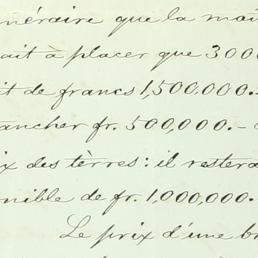 néraire que la mai
ait à placer que 3000
it de francs 1,500,000.-
rancher fr. 500,000.-
ix des tèrres: il restera
nible de fr. 1,000,000.
Le prix d'une br